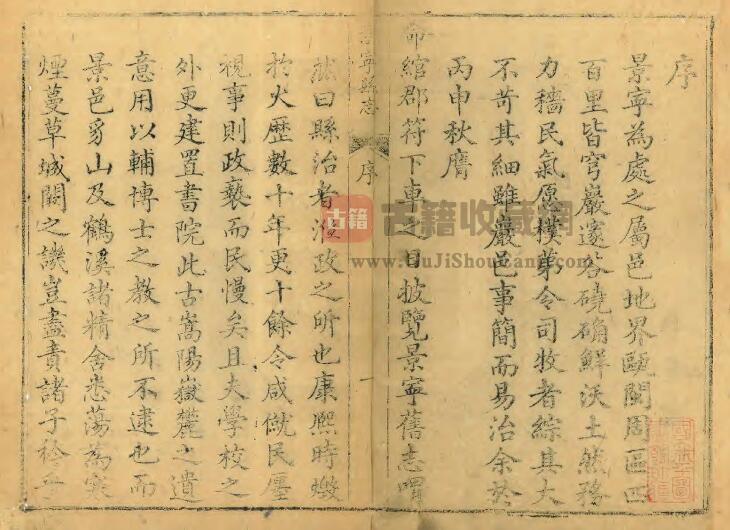 序
景寧為處之屬邑地界甌閩周區四
百里皆穹巖邃谷磽确鮮沃土然務
力穡民氣愿樸苐令司牧者綜其大
不苛其細雖巖邑事簡而易治余於
丙申秋膺
命綰郡符下車之日披覽景寧舊志喟
景寧縣志
序
一
然曰縣治者涖政之所也康熙時燬
於火歷數十年更十餘令咸僦民廛
視事則政褻而民慢矣且夫學校之
外更建置書院此古嵩陽嶽麓之遺
意用以輔博士之教之所不逮也而
景邑豸山及鶴溪諸精舍悉蕩為寒
煙蔓草城闕之譏豈盡責諸子衿
古籍
古籍收藏網
www.GuJiShouCang.com